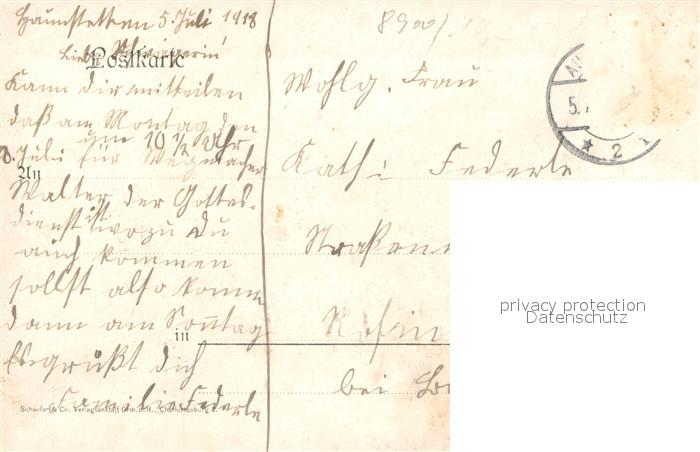 Haunstetten 5. Juli 1918
Liebe Schwägerin!
Postkarte
Kann dir mitteilen
daß am Montag den
um 10 1/2 Uhr
8. Juli für Wegmacher
An
Walter der Gottes-
dienst ist wozu Du
auch kommen
sollst also komm
dann am Sonntag
Es grüßt dich
Familie Federle
Wohlg. Frau
Kathi Federle
in
bei
8900/
5.
* 2
Schaefer & Co. Verlagsanstalt G.m.b.H., Charlottenburg 2.
privacy protection
Datenschutz